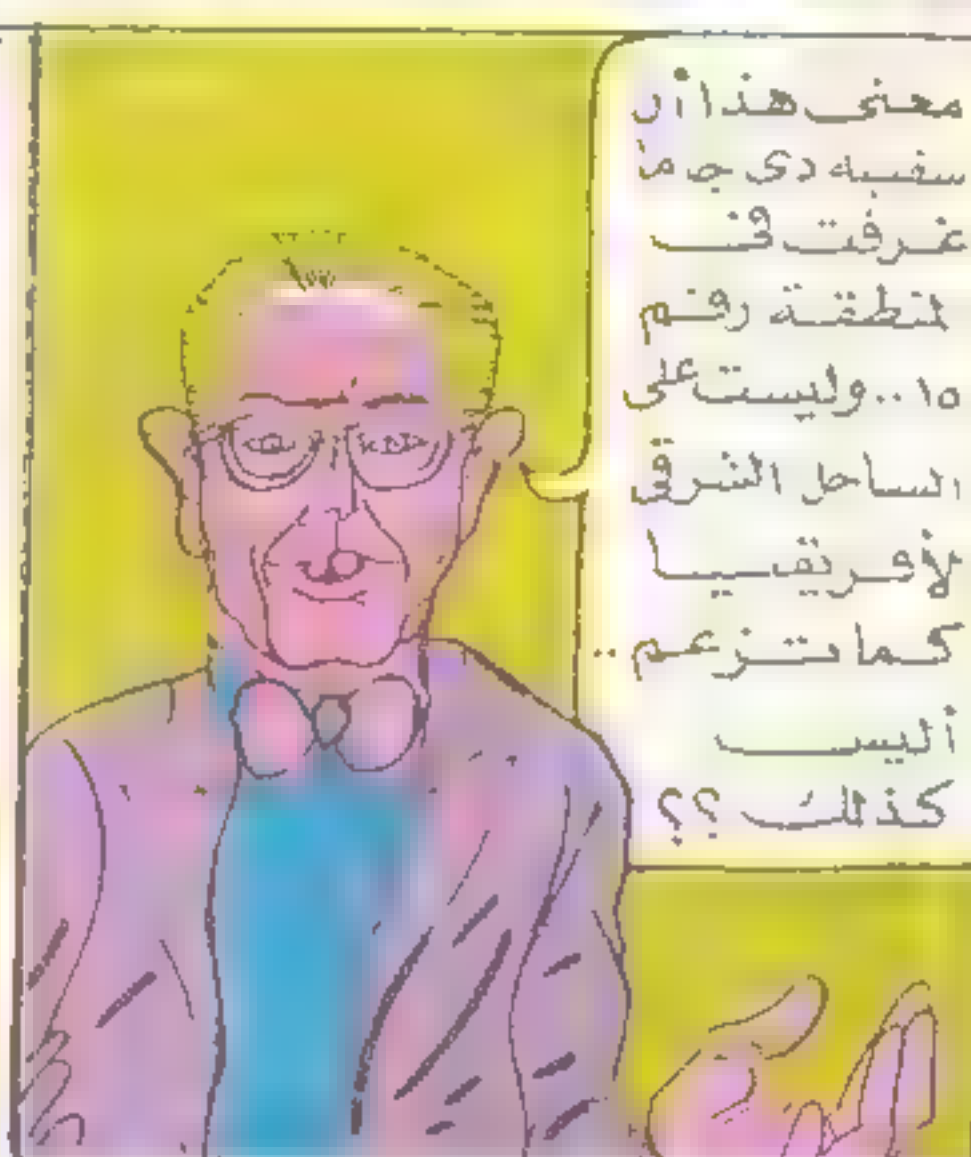 معنى هذا أن
سفينه دى جاما
غرقت فى
لمنطقة رقم
١٥.. وليست على
الساحل الشرقى
لأفريقيا
كما تزعم ..
أليس
كذلك ؟؟